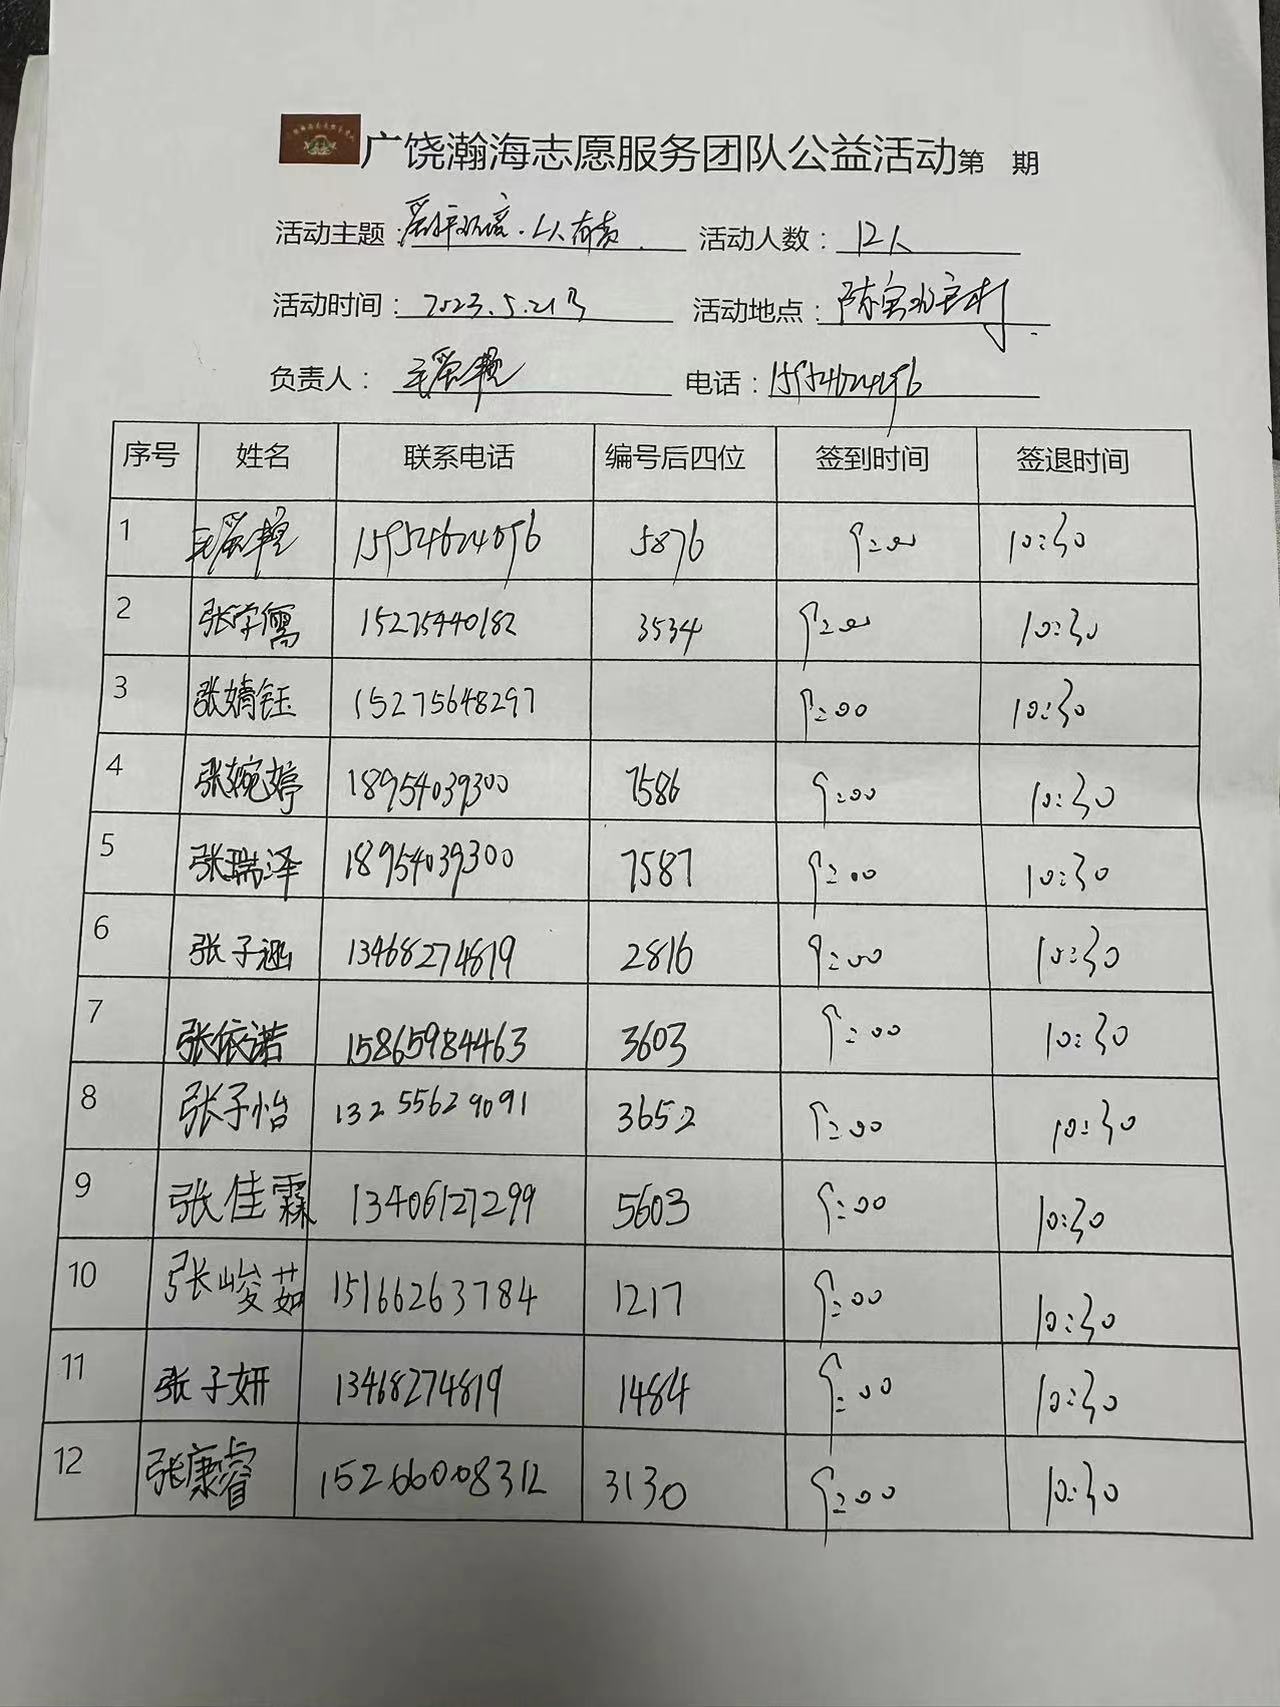 广饶瀚海志愿服务团队公益活动第 期
活动主题: 爱护环境.人人有责. 活动人数: 12人
活动时间: 2023.5.21日 活动地点: 陈官
负责人: 电话: 15954624096
序号 姓名 联系电话 编号后四位 签到时间 签退时间
1 15954624096 5876 9:00 10:30
2 张学儒 15275440182 3534 9:00 10:30
3 张婧钰 15275648297 9:00 10:30
4 张婉婷 18954039300 7586 9:00 10:30
5 张瑞泽 18954039300 7587 9:00 10:30
6 张子涵 13468274819 2816 9:00 10:30
7 张依诺 15865984463 3603 9:00 10:30
8 张子怡 13255629091 3652 9:00 10:30
9 张佳霖 13406127299 5603 9:00 10:30
10 张峻茹 15166263784 1217 9:00 10:30
11 张子妍 13468274819 1484 9:00 10:30
12 张康睿 15266008312 3130 9:00 10:30